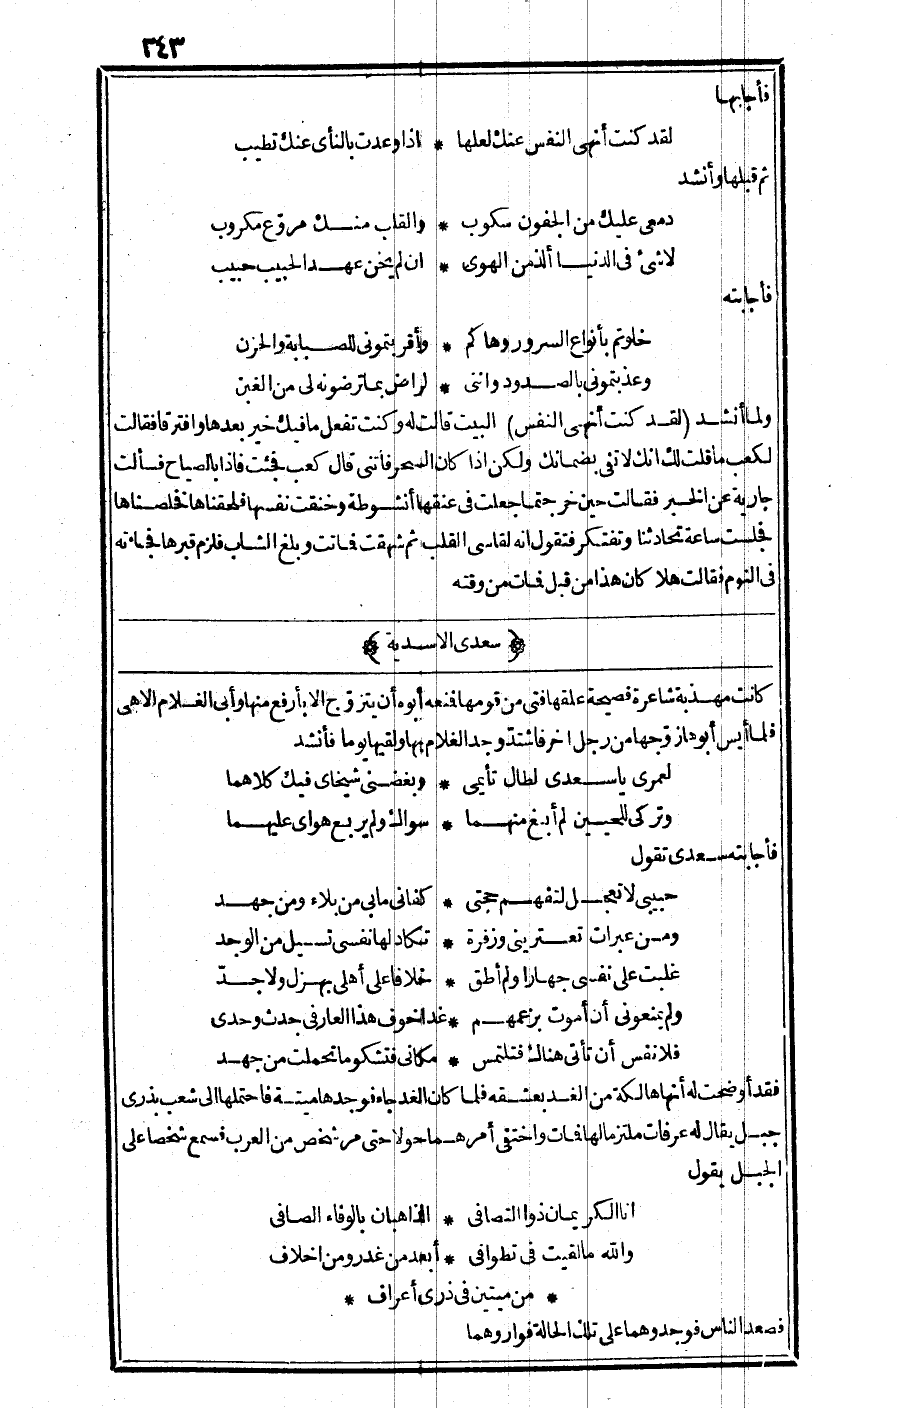 ٢٤٣
فأجابها
لقد كنت أنهى النفس عنك لعلها * اذا وعدت بالنأى عنك تطيب
ثم قبلها وأنشد
دمعى عليك من الجفون سكوب * والقلب منك مروّع مكروب
لاشئ فى الدنيا ألذ من الهوى * ان لم يخن عهد الحبيب حبيب
فأجابته
خلوتم بأنواع السرور وها كم * وأفر يتمونى للصبابة والحزن
وعذبتمونى بالصدود واننى * لراض بما ترضونه لى من الغبن
ولما أنشد (لقد كنت أنهى النفس) البيت قالت له وكنت تفعل مافيك خير بعدها وافترقا فقالت
لكعب ماقلت لك انك لا تفى بضمانك ولكن اذا كان السحر فأتنى قال كعب فجئت فاذا بالصياح فسألت
جارية عن الخبر فقالت حين خرجتما جعلت فى عنقها أنشوطة وخنقت نفسها فلحقناها فخلصناها
فجلست ساعة تحادثنا وتفتكر فتقول انه لقاسى القلب ثم شهقت فماتت وبلغ الشاب فلزم قبرها فجاءته
فى النوم فقالت هلا كان هذا من قبل فمات من وقته
﴿سعدى الاسدية﴾
كانت مهذبة شاعرة فصيحة علقها فتى من قومها فمنعه أبوه أن يتزوّج الا بأرفع منها وأبى الغلام الا هى
فلما أيس أبوها زوّجها من رجل اخر فاشتدّ وجد الغلام بها ولقيها يوما فأنشد
لعمرى ياسعدى لطال تأيمى * وبغضنى شيخاى فيك كلاهما
وتركى للحيين لم أبغ منهما * سواك ولم يربع هواى عليهما
فأجابته سعدى تقول
حبيبى لا تعجل لتفهم حجتى * كفانى مابى من بلاء ومن جهد
ومن عبرات تعترينى وزفرة * تكاد لها نفسى تسيل من الوجد
غلبت على نفسى جهارا ولم أطق * خلافا على أهلى بهزل ولا جدّ
ولم يمنعونى أن أموت بزعمهم * غدا خوف هذا العار فى جدث وحدى
فلا نفس أن تأتى هناك فتلتمس * مكانى فتشكو ما تحملت من جهد
فقد أوضحت له أنها هالكة من الغد بعشقه فلما كان الغد جاء فوجدها ميتة فاحتملها الى شعب بذرى
جبل يقال له عرفات ملتزما لها فمات واختفى أمرهما حولا حتى مر شخص من العرب فسمع شخصا على
الجبل يقول
انا الكريمان ذوا التصافى * الذاهبان بالوفاء الصافى
والله مالقيت فى تطوافى * أبعد من غدر ومن اخلاف
* من ميتين فى ذرى أعراف *
فصعد الناس فوجدوهما على تلك الحالة فواروهما